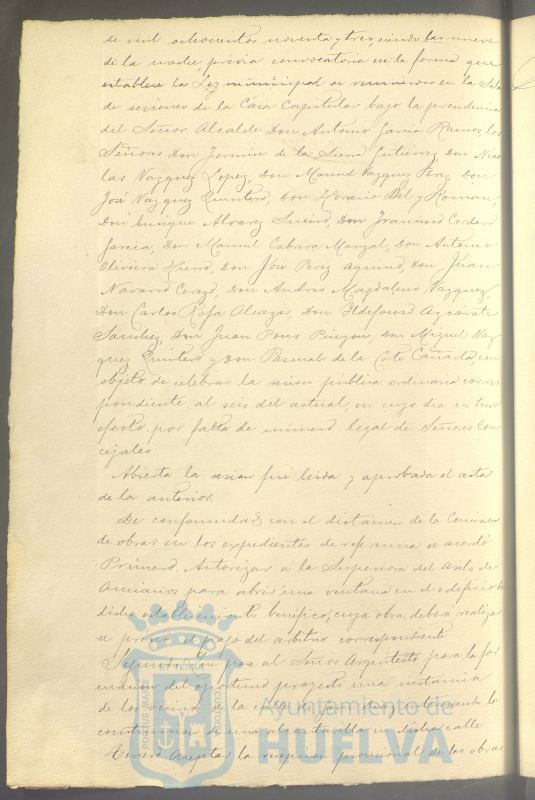 de mil ochocientos noventa y tres, siendo las nueve
de la noche, previa convocatoria en la forma que
establece la Ley municipal se reunieron en la Sala
de sesiones de la Casa Capitular bajo la presidencia
del Señor Alcalde Don Antonio García Ramos, los
Señores Don Jeremin de la Sierra Gutiérrez, Don Nico
las Vazquez Lopez, Don Manuel Vazquez Perez, Don
José Vazquez Quintero, Don Horacio Bel y Roman,
Don Enrique Alvarez Sueiro, Don Francisco Cordero
Garcia, Don Manuel Cabrera Monzal, Don Antonio
Oliveira Hierro, Don José Perez Aquino, Don Juan
Navarro Cerezo, Don Andrés Magdaleno Vazquez,
Don Carlos Rofa Alcazar, Don Ildefonso Azcárate
Sanchez, Don Juan Pons Pinzon, Don Miguel Vaz
quez Quintero y Don Pascual de la Corte Cañada, con
objeto de celebrar la sesion pública ordinaria corres
pondiente al seis del actual, en cuyo dia no tuvo
efecto por falta de número legal de Señores Con
cejales.
Abierta la sesion fué leida y aprobada el acta
de la anterior.
De conformidad con el dictámen de la Comision
de obras en los expedientes de referencia se acordó
Primero. Autorizar á la Superiora del Asilo de
Ancianos para abrir una ventana en el edificio de
dicho establecimiento benéfico, cuya obra deberá realizar
se previo el pago del arbitrio correspondiente
Segundo. Que pase al Señor Arquitecto para la for
macion del oportuno proyecto una instancia
de los vecinos de la calle de solicitando la
construccion de una alcantarilla en dicha calle
Tercero. Aceptar la recepcion provisional de las obras
Ayuntamiento de
HUELVA
PORTUS MARIS
ET TERRÆ
CUSTODIA